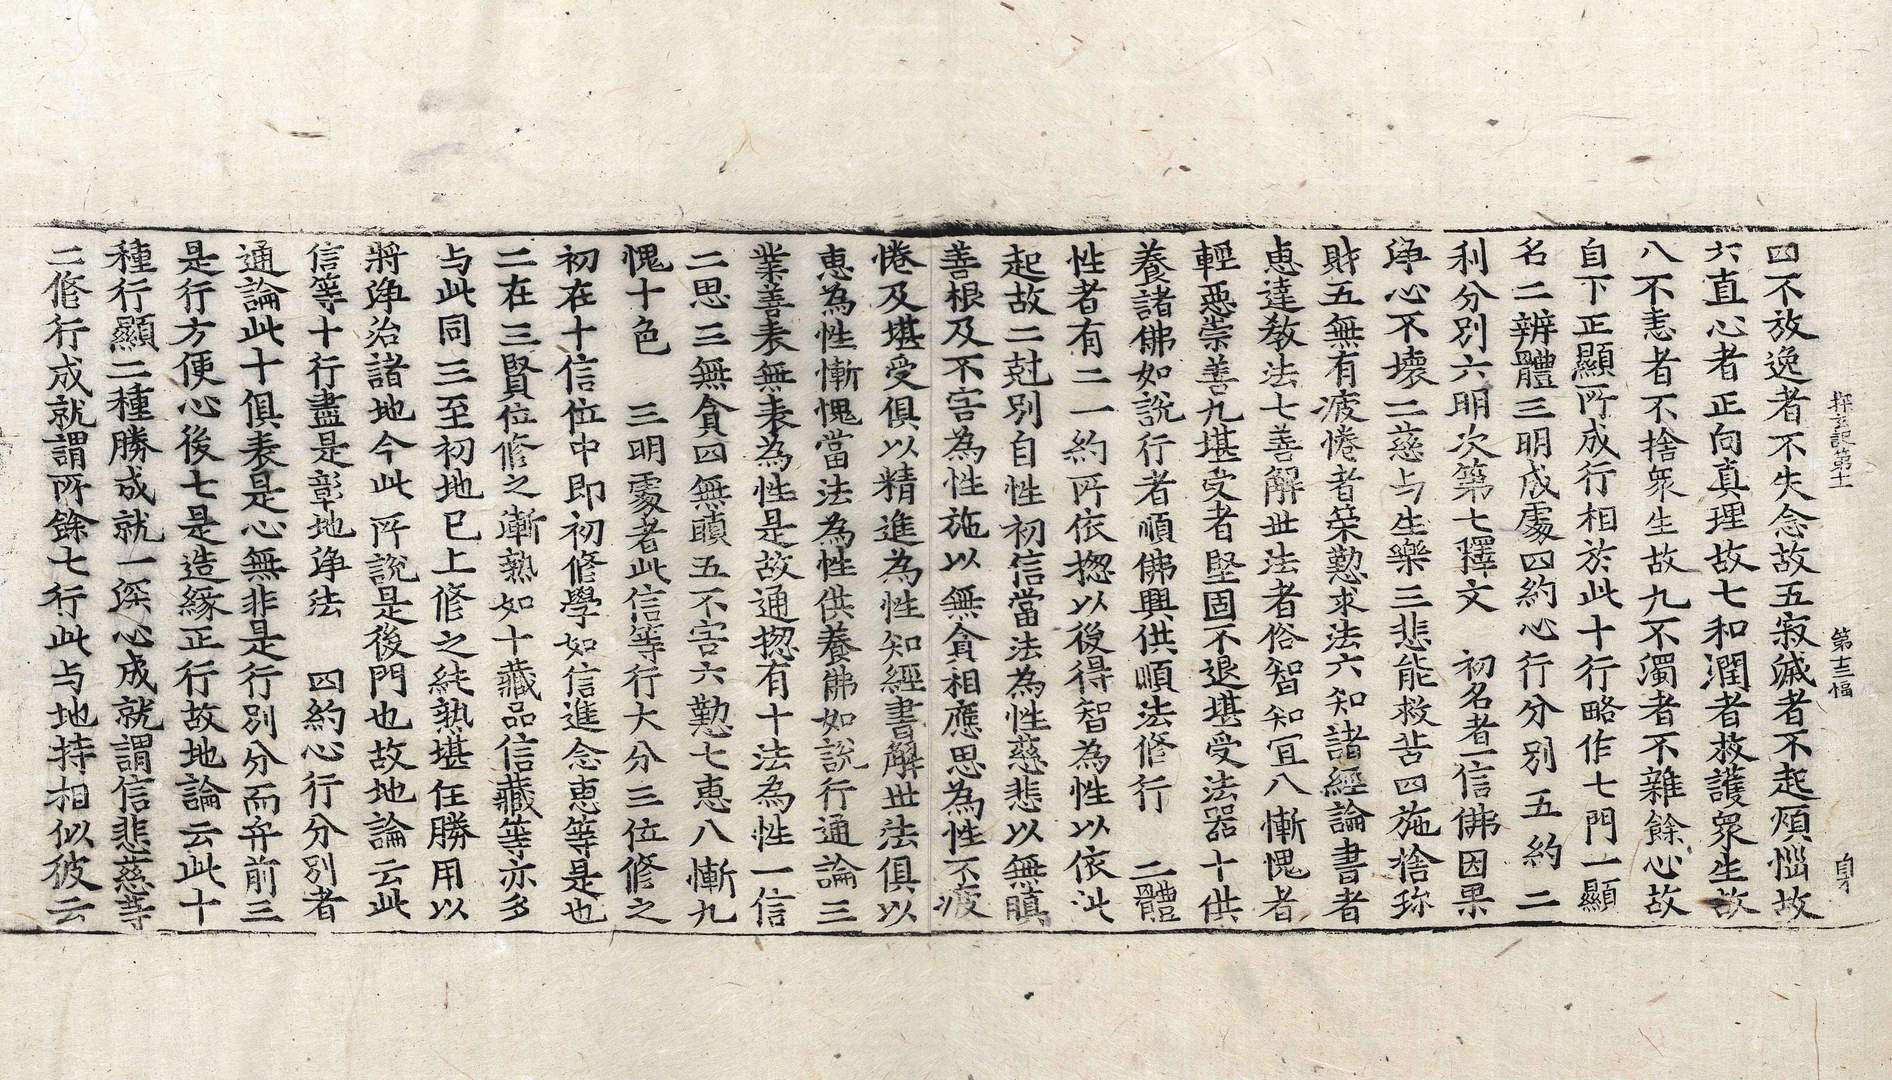 探玄記第十一 第十三幅 身
四不放逸者不失念故五寂滅者不起煩惱故
六直心者正向真理故七和潤者救護眾生故
八不恚者不捨眾生故九不濁者不雜餘心故
自下正顯所成行相於此十行略作七門一顯
名二辨體三明成處四約心行分別五約二
利分別六明次第七釋文 初名者一信佛因果
净心不壞二慈与生樂三悲能救苦四施捨珎
財五無有疲惓者榮懃求法六知諸經論書者
恵達敎法七善解世法者俗智知冝八慚愧者
輕惡崇善九堪受者堅固不退堪受法器十供
養諸佛如說行者順佛興供順法修行 二體
性者有二一約所依揔以後得智為性以依此
起故二尅別自性初信當法為性慈悲以無瞋
善根及不害為性施以無貪相應思為性不疲
惓及堪受俱以精進為性知經書解世法俱以
恵為性慚愧當法為性供養佛如說行通論三
業善表無表為性是故通揔有十法為性一信
二思三無貪四無瞋五不害六懃七恵八慚九
愧十色 三明處者此信等行大分三位修之
初在十信位中即初修學如信進念恵等是也
二在三賢位修之漸熟如十藏品信藏等亦多
与此同三至初地已上修之純熟堪任勝用以
將净治諸地今此所說是後門也故地論云此
信等十行盡是彰地净法 四約心行分別者
通論此十俱表是心無非是行別分而弁前三
是行方便心後七是造緣正行故地論云此十
種行顯二種勝成就一深心成就謂信悲慈等
二修行成就謂所餘七行此与地持相似彼云